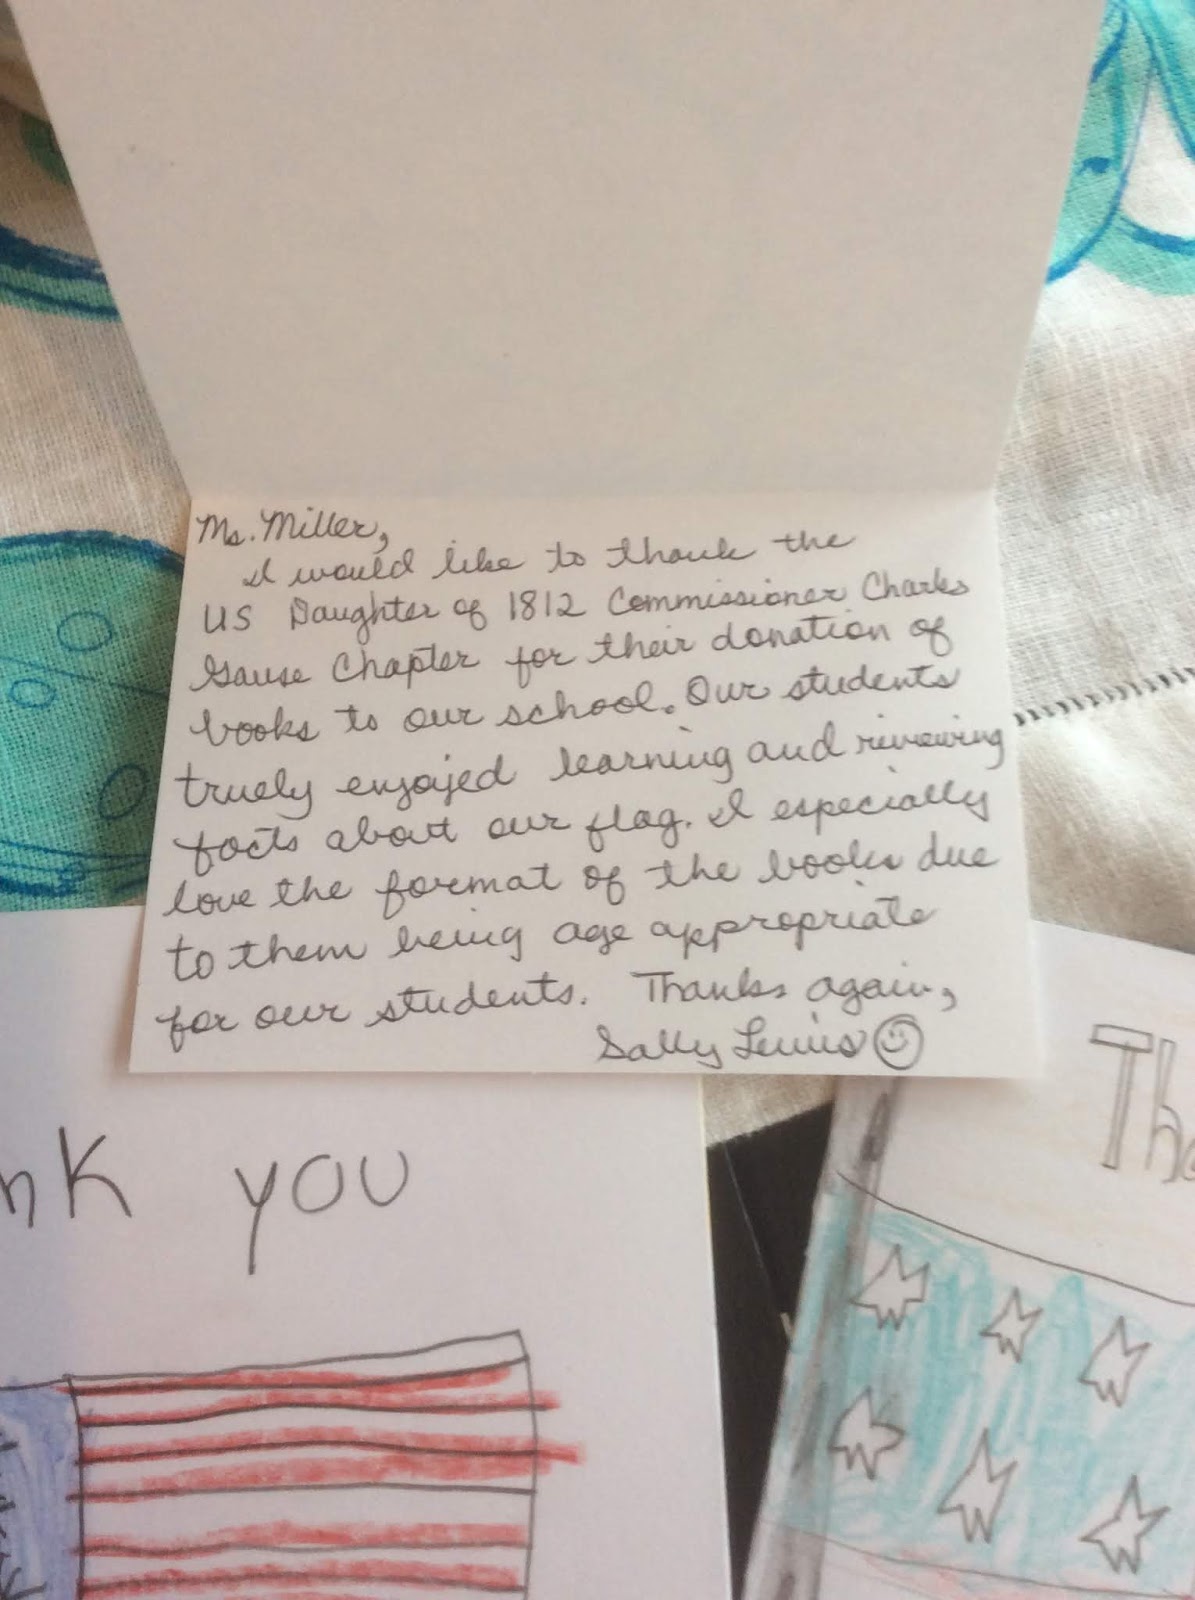 Ms. Miller,
I would like to thank the
US Daughter of 1812 Commissioner Charles
Gause Chapter for their donation of
books to our school. Our students
truely enjoyed learning and reviewing
facts about our flag. I especially
love the format of the books due
to them being age appropriate
for our students. Thanks again,
Sally Lewis
nk you
Tha